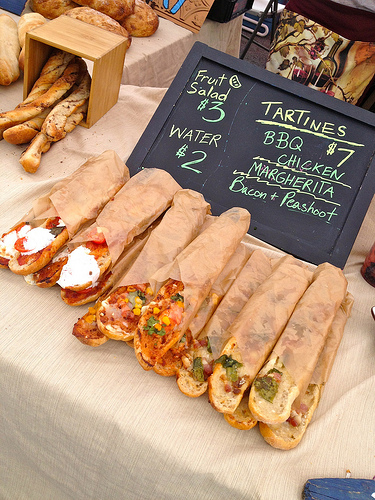 Fruit
Salad
$3
WATER
$2
TARTINES
BBQ $7
CHICKEN
MARGHERITA
Bacon + Peashoot